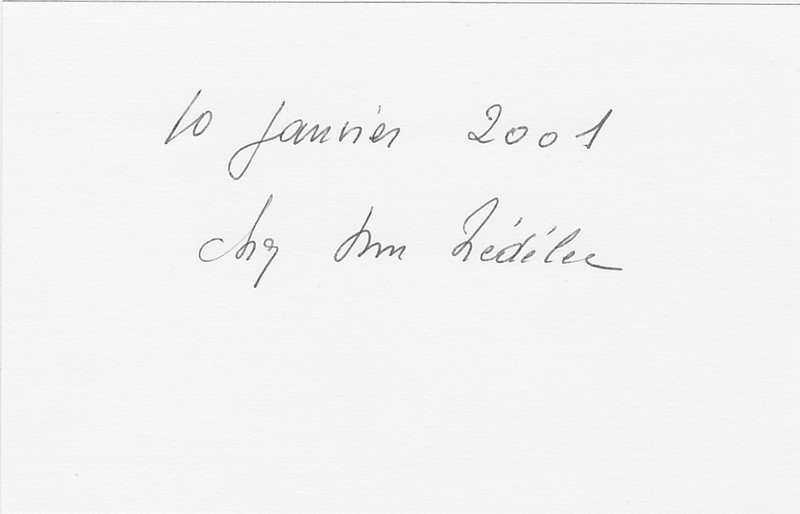 10 Janvier 2001
chez Nédélec